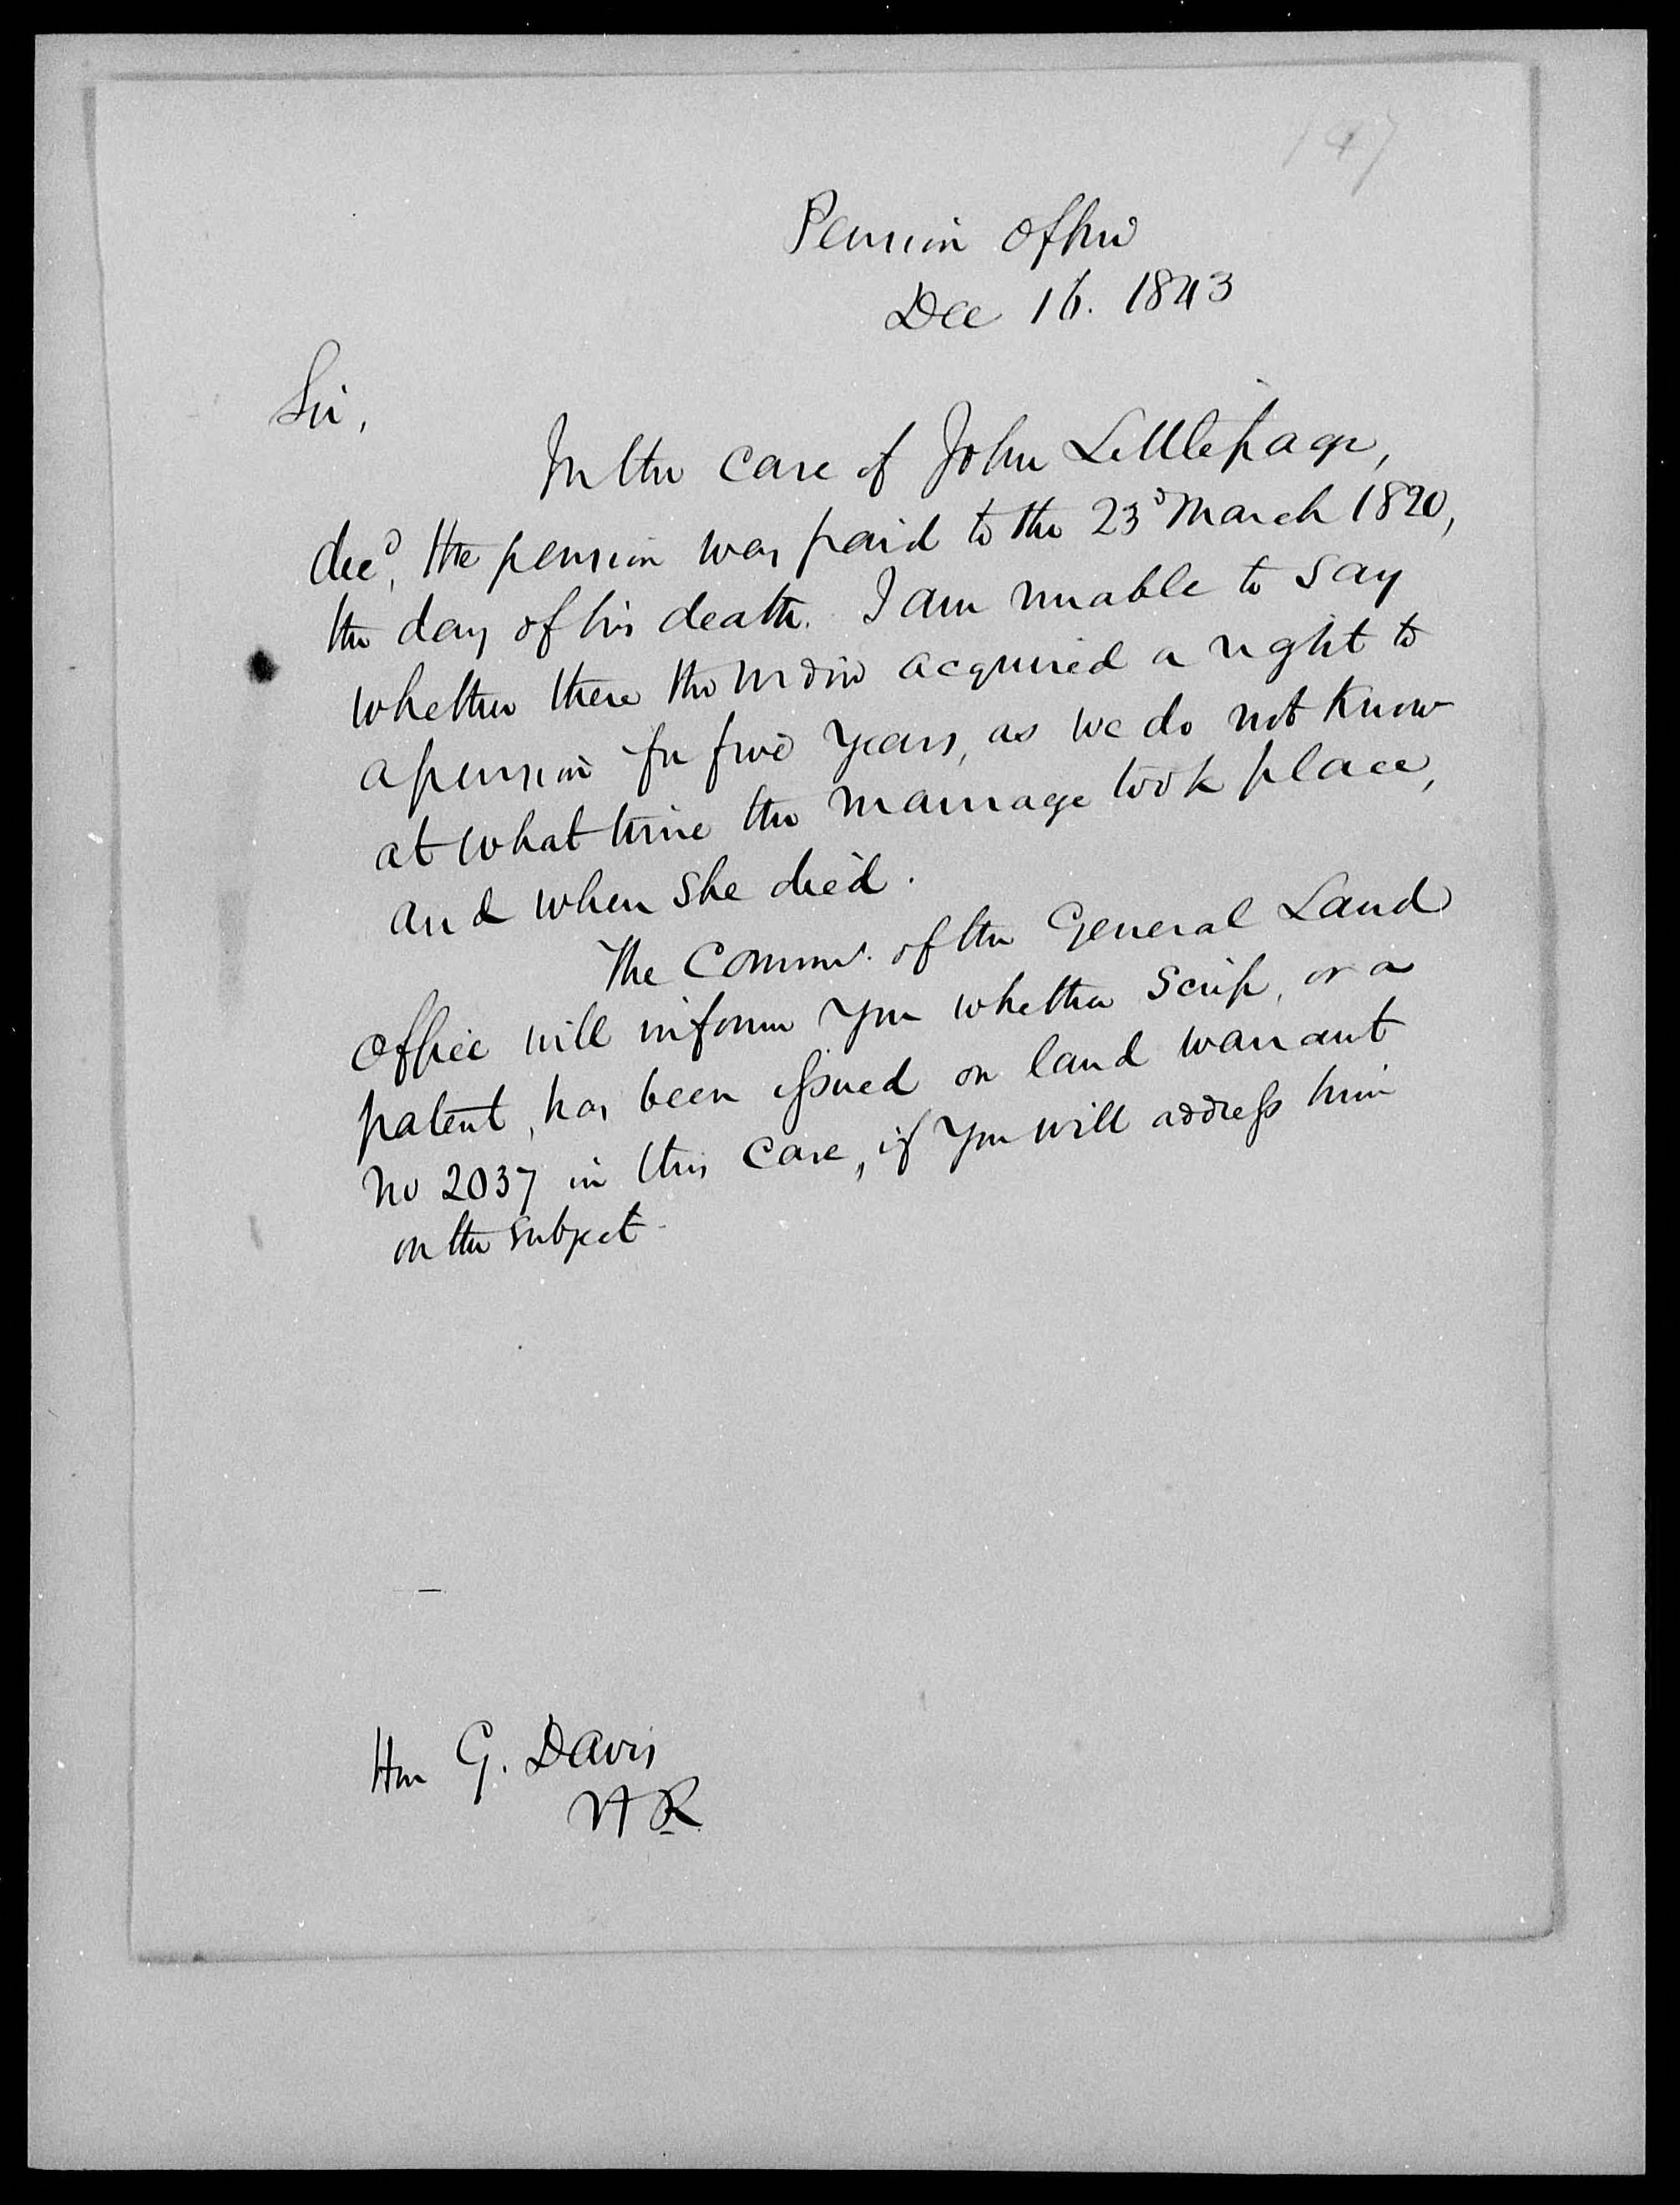 147
Pension Office
Dec 16. 1843
Sir,
In the case of John Littlepage,
decd, the pension was paid to the 23d March 1820,
the day of his death. I am unable to say
whether there the widow acquired a right to
a pension for five years, as we do not know
at what time the marriage took place,
and when she died.
The Commr. of the General Land
Office will inform you whether Scrip, or a
patent, has been issued on land warrant
No 2037 in this case, if you will address him
on the subject
Hon G. Davis
H R